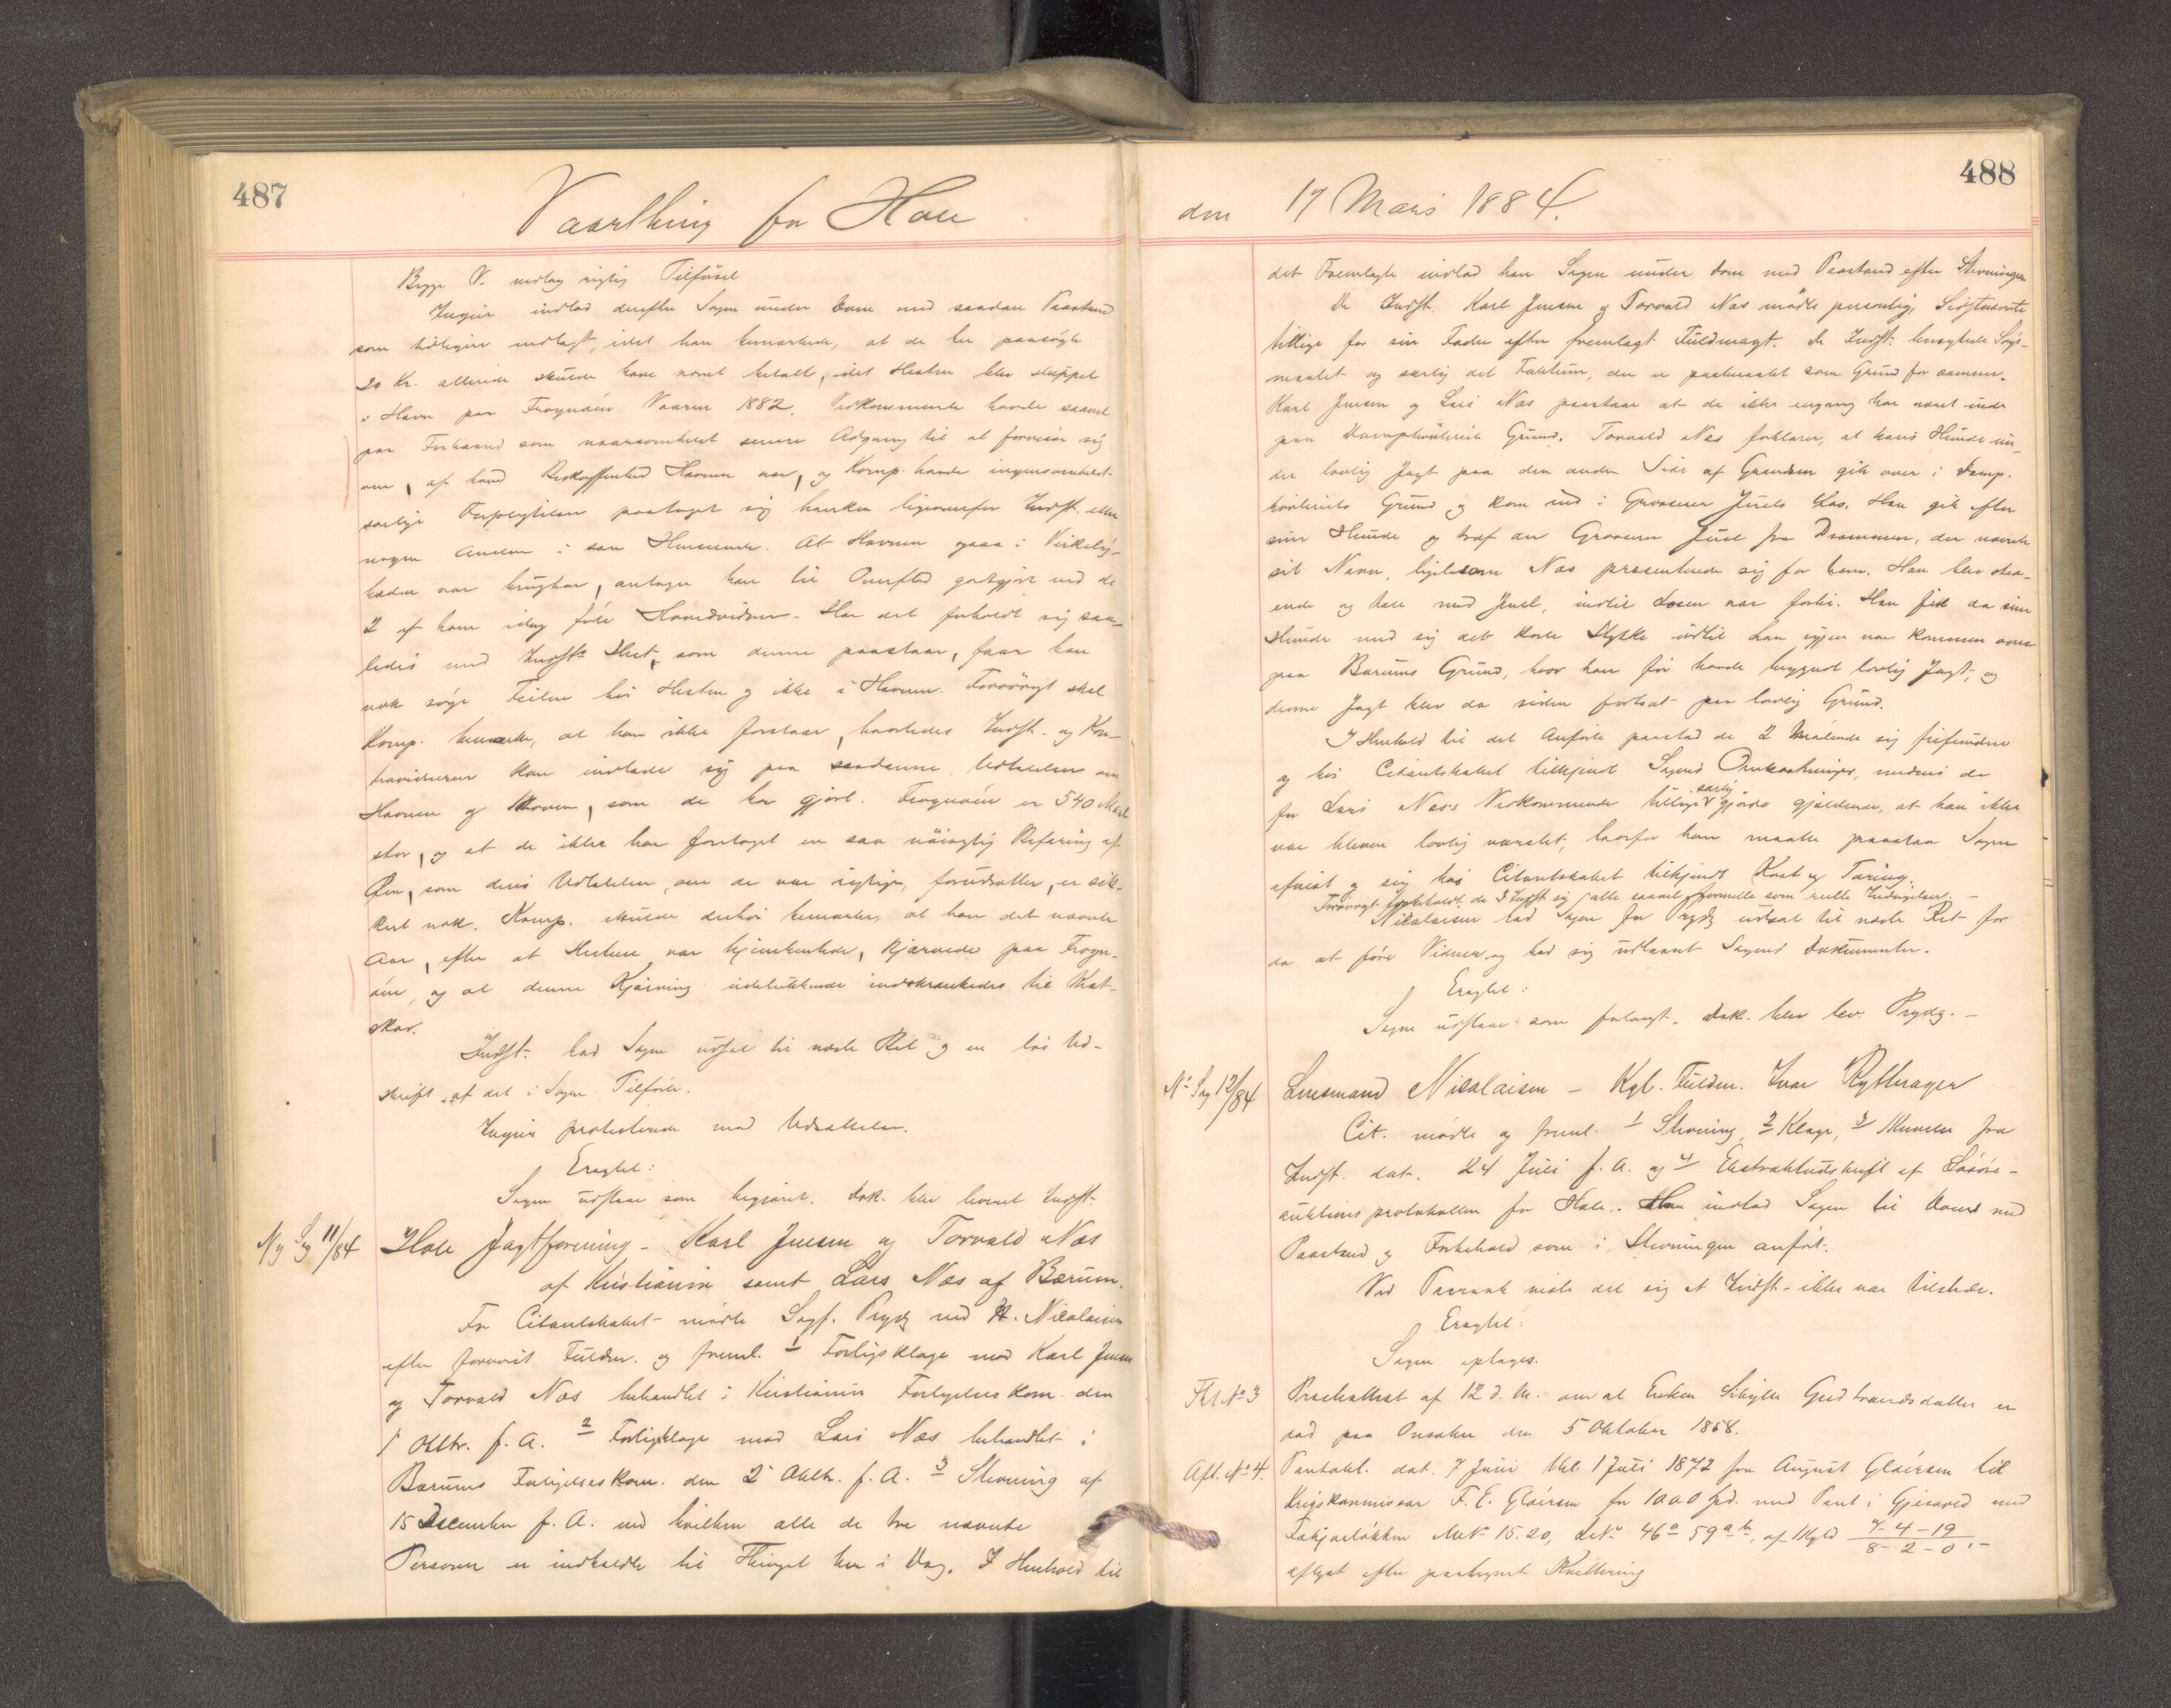 487
Vaarthing for Hole
Begge V. vedtog rigtig Tilførsel
Ingier indlod derefter Sagen under Dom med saadan Paastand
som tidligere nedlagt, idet han bemærkede, at de her paasøgte
20 Kr. allerede skulde have været betalt, idet Hesten blev sluppet
i Havn paa Frognøen Vaaren 1882. Vedkommende havde saavel
paa Forhaand som naarsomhelst senere Adgang til at forvisse sig
om, af hvad Beskaffenhed Havnen var, og Komp. havde ingensomhelst
særlige Forpligtelser paataget sig hverken ligeoverfor Indst. eller
nogen Anden i saa Henseende. At Havnen ogsaa i Virkelig-
heden var brugbar, antager han til Overflod godtgjort ved de
2 af ham idag førte Hovedvidner. Har det forholdt sig saa-
ledes med Indst Hest, som denne paastaar, faar han
nok søge Feilen hos Hesten og ikke i Havnen. Forøvrigt skal
Komp. bemærke, at han ikke forstaar, hvorledes Indst. og Kon-
travidnerne kan indlade sig paa saadanne Udtalelser om
Havnen og Skoven, som de har gjort. Frognøen er 540 Maal
stor, og at de ikke har foretaget en saa nøiagtig Befaring af
Øen, som deres Udtalelser, om de var rigtige, forudsætter, er sik-
kert nok. Komp. skulde derhos bemærke, at han det nævnte
Aar, efter at Hestene var hjemhentede, kjørvede paa Frogn-
øen, og at denne Kjørving udelukkende indskrænkedes til Krat-
skov.
Indst. bad Sagen udsat til næste Ret og en løs Ud-
skrift af det i Sagen Tilførte.
Ingier protesterede mod Udsættelsen.
Eragtet:
Sagen udstaar som begjæret. Dok. blev leveret Indst.
Ny Sag 11/84 Hole Jagtforening - Karl Jensen og Torvald Næs
af Kristiania samt Lars Næs af Bærum.
For Citantskabet mødte Sagf. Prydz ved H. Nicolaisen
efter forevist Fuldm. og freml. 1 Forligsklage mod Karl Jensen
og Torvald Næs behandlet i Kristiania Forligelseskom. den
1 Oktbr. f. A. 2 Forligsklage mod Lars Næs behandlet i
Bærums Forligelseskom. den 2 Oktbr. f. A. 3 Stevning af
15 December f. A. ved hvilken alle de tre nævnte
Personer er indkaldte til Thinget her i Dag. I Henhold til
488
den 17 Marts 1884.
det Fremlagte indlod han Sagen under Dom med Paastand efter Stevningen
De Indst. Karl Jensen og Torvald Næs mødte personlig, Sidstnævnte
tillige for sin Fader efter fremlagt Fuldmagt. De Indst. benægtede Søgs-
maalet og særlig det Faktum, der er paaberaabt som Grund for samme.
Karl Jensen og Lars Næs paastaar at de ikke engang har været inde
paa Damphvileriets Grund. Torvald Næs forklarer, at hans Hunde un-
der lovlig Jagt paa den anden Side af Grændsen gik over i
Grund og kom ind i Grosserer Juels Has. Han gik efter
sine Hunde og traf der Grosserer Juel fra Drammen, der nævnte
sit Navn, ligesom Næs præsenterede sig for ham. Han blev staa-
ende og tale med Juel, indtil Losen var forbi. Han fik da sine
Hunde med sig det korte Stykke indtil han igjen var kommen over
paa Bærums Grund, hvor han før havde begyndt lovlig Jagt, og
denne Jagt blev da siden fortsat paa lovlig Grund.
I Henhold til det Anførte paastod de 2 Mødende sig frifundne
og hos Citantskabet tilkjendt Sagens Omkostninger, medens de
for Lars Næs's Vedkommende tillige særlig gjorde gjældende, at han ikke
var bleven lovlig varslet, hvorfor han maatte paastaa Sagen
afvist og sig hos Citantskabet tilkjendt Kost og Tæring.
Forøvrigt forbeholdt de 3 Indst. sig alle saavel formelle som reelle Indsigelser. -
Nicolaisen bad Sagen for Prydz udsat til næste Ret for
da at føre Vidner og bad sig udlaant Sagens Dokumenter.
Eragtet:
Sagen udstaar som forlangt. Dok. blev lev. Prydz. -
No Sag 12/84 Lensmand Nicolaisen - Kgl. Fuldm. Ivar Rytterager
Cit. mødte og freml. 1 Stevning, 2 Klage, 3 Skrivelse fra
Indst. dat. 24 Juli f. A. og 4 Ekstraktudskrift af Løsøre-
auktionsprotokollen for Hole. Han indlod Sagen til Doms med
Paastand og Forbehold som i Stevningen anført.
Ved Paaraab viste det sig at Indst. ikke var tilstede.
Eragtet:
Sagen optages.
No 3 Presteattest af 12 d. M. om at Enken Sibylle Gudbrandsdatter er
død paa Onsaker den 5 Oktober 1868.
Afl. No 4. Pantobl. dat. 7 Juni thl. 1 Juli 1872 fra August Gløersen til
Krigskommissær F. E. Gløersen for 1000 Spd. med Pant i Gjesvold med
MtNo 15.20, LNo 46a 59ab, af Skyld 7-4-19 / 8-2-0. -
aflyst efter paategnet Kvittering